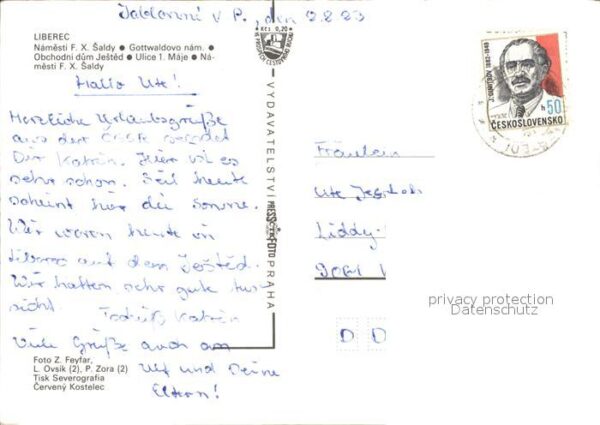 Jablonné v P., den 9.8.83
LIBEREC
Náměstí F. X. Šaldy ● Gottwaldovo nám. ●
Obchodní dům Ještěd ● Ulice 1. Máje ● Ná-
městí F. X. Šaldy
Hallo Ute!
Herzliche Urlaubsgrüße
aus der ČSSR sendet
Dir Katrin. Hier ist es
sehr schön. Seit heute
scheint hier die Sonne.
Wir waren heute in
Liberec auf dem Ještěd.
Wir hatten sehr gute
sicht.
Katrin
Viele Grüße auch an
Ulf und Deine
Eltern!
Foto Z. Feyfar,
L. Ovsík (2), P. Zora (2)
Tisk Severografia
Červený Kostelec
Kčs 0,20
VYDAVATELSTVÍ PRESSFOTO PRAHA
J. DIMITROV 1882-1949
50 h
ČESKOSLOVENSKO
Fräulein
Ute
D D
privacy protection
Datenschutz